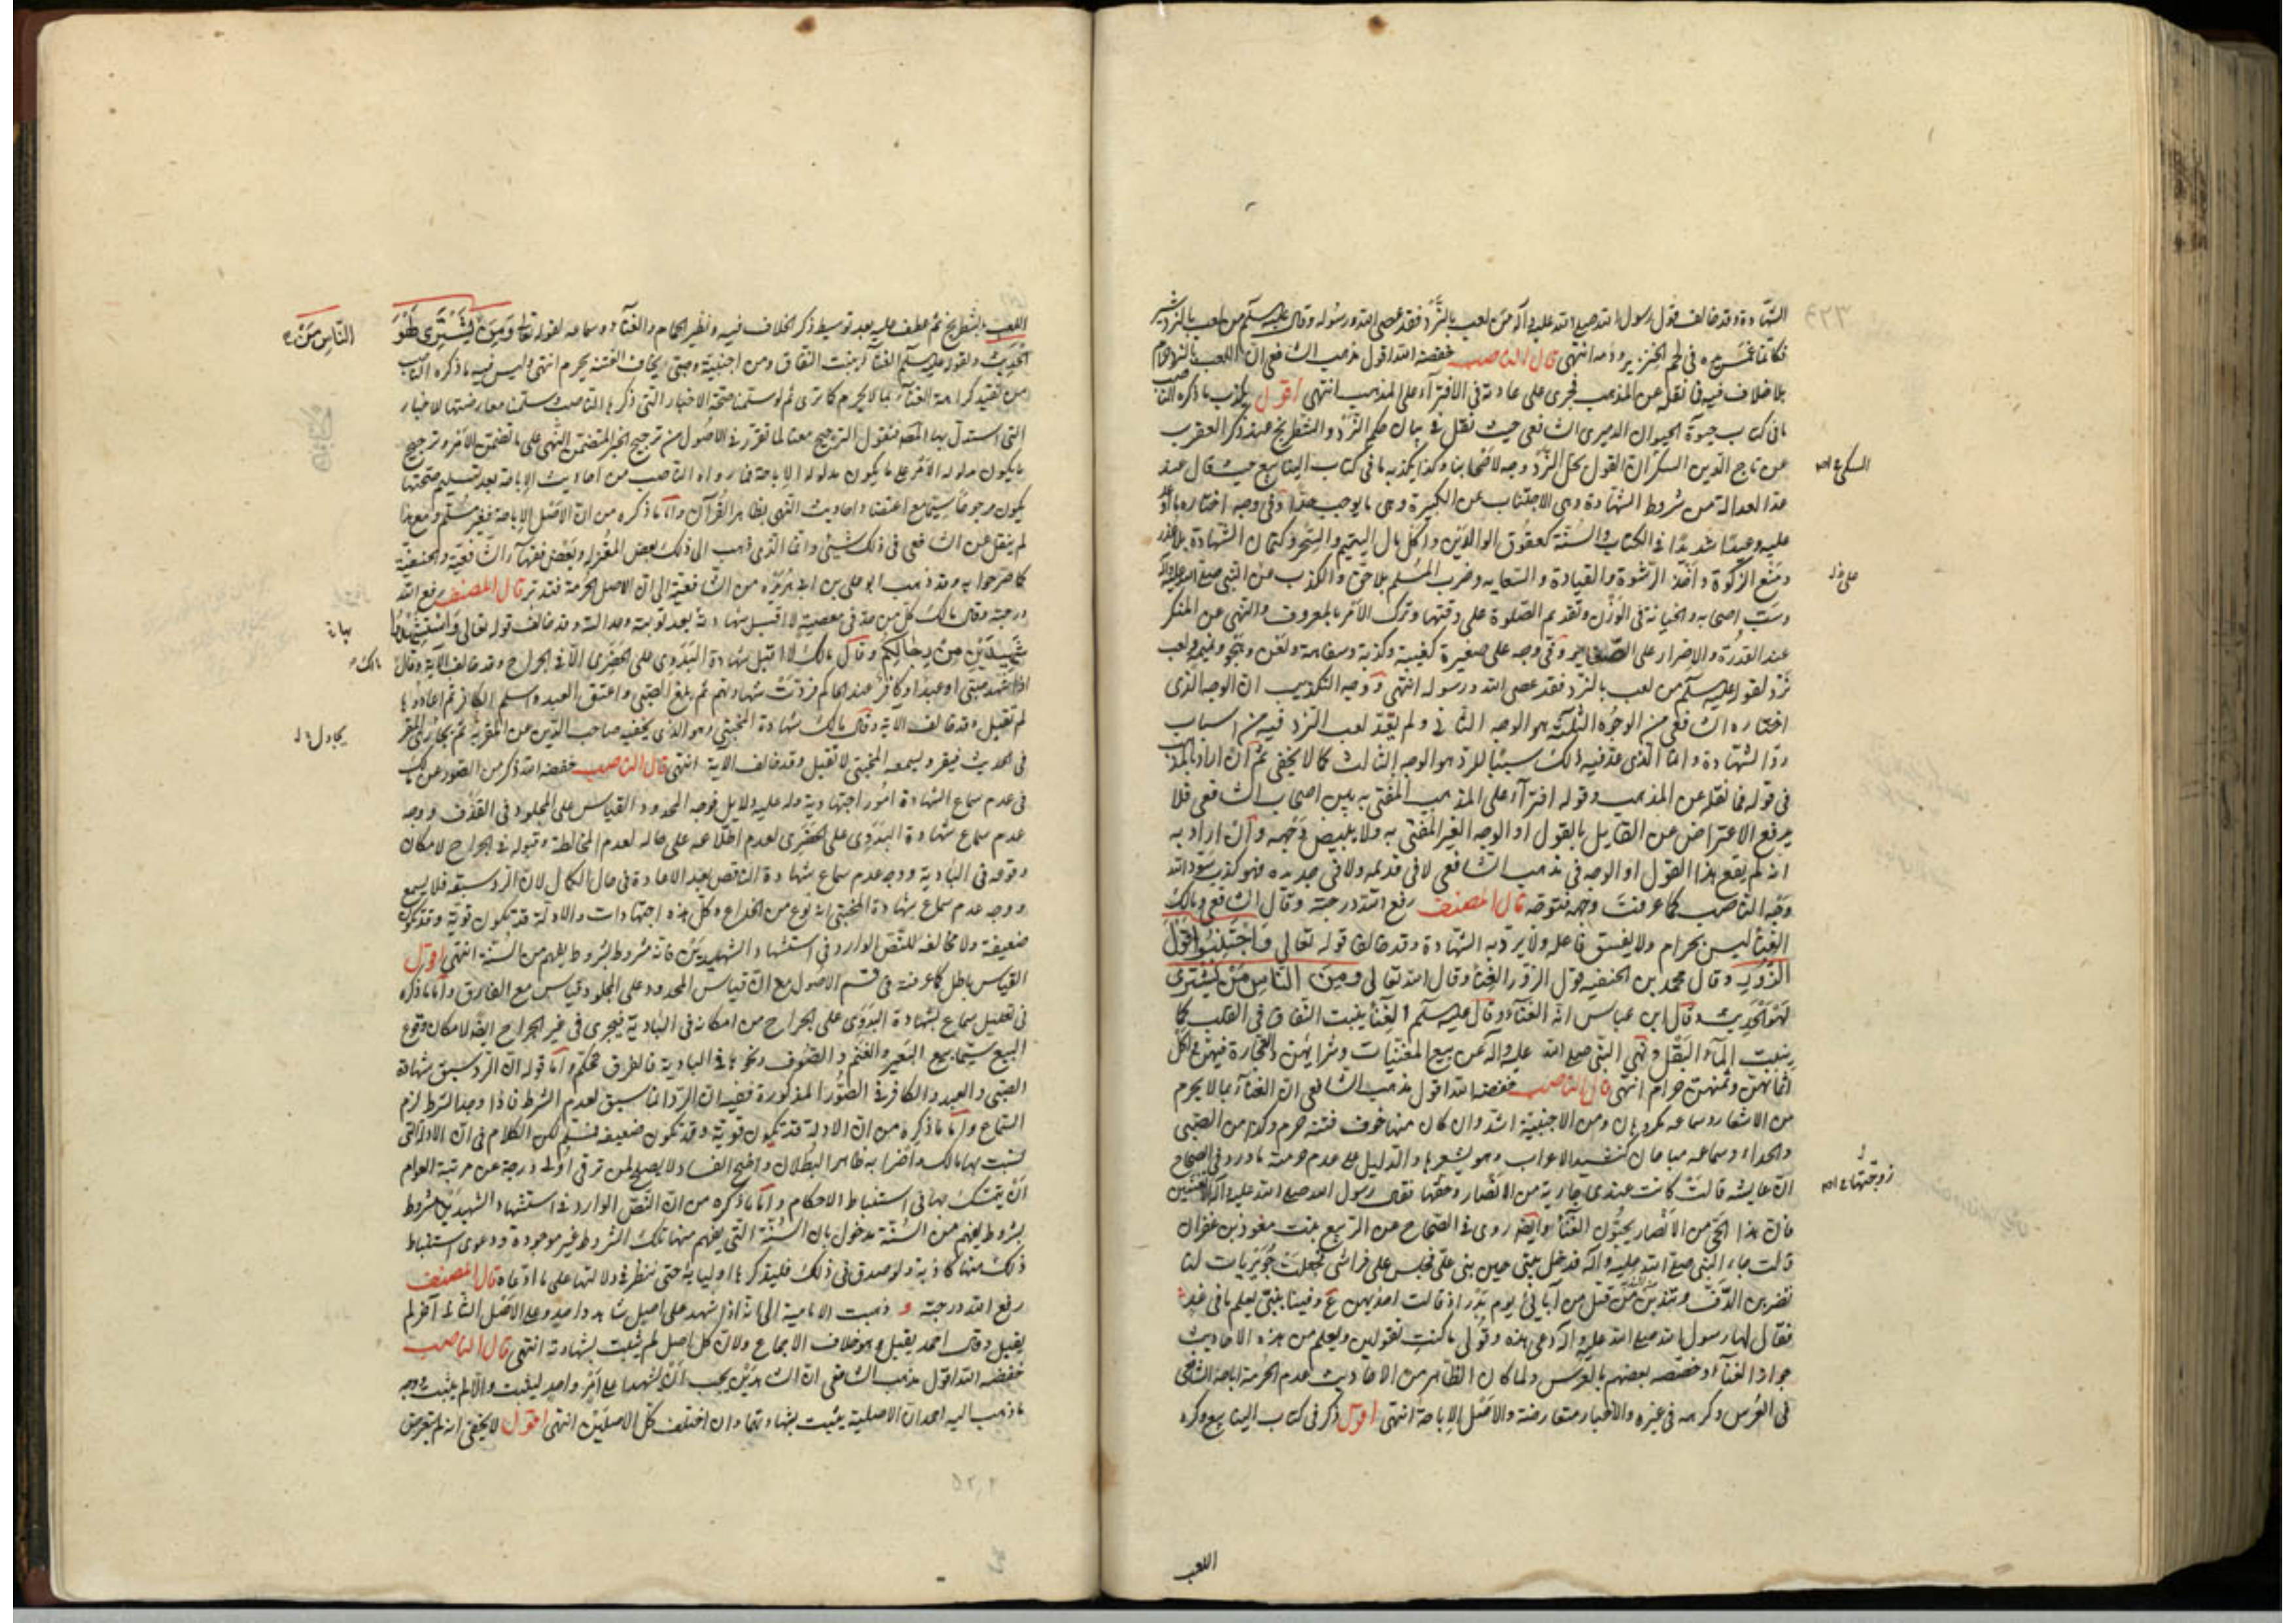 الشهادة وقد خالف قول رسول الله صلى الله عليه وآله من لعب بالنرد فقد عصى الله ورسوله وقال عليه السلم من لعب بالنرد شير
فكانما غمس يده في لحم الخنزير ودمه انتهى قال الناصب خفضه الله اقول مذهب الشافعي ان اللعب بالنرد حرام
بلا خلاف فيه فما نقله عن المذهب فجرى على عادته في الافتراء على المذهب انتهى اقول يكذب ما ذكره الناصب
ما في كتاب حيوة الحيوان للدميري الشافعي حيث نقل في بيان حكم النرد والشطرنج عند ذكر العقرب
عن تاج الدين السكر ان القول بحل النرد وجه لاصحابنا وكذا يكذبه ما في كتاب الينابيع حيث قال عند
عد العدالة من شروط الشهادة وهي الاجتناب عن الكبيرة وهي ما يوجب حدا وفي وجه اختاره ما اوعد
عليه وعيدا شديدا في الكتاب والسنة كعقوق الوالدين واكل مال اليتيم والسحر وكتمان الشهادة بلا عذر
ومنع الزكوة واخذ الرشوة والقيادة والسعاية وضرب المسلم بلا حق والكذب عن النبي صلى الله عليه وآله
وسب اصحابه والخيانة في الوزن وتقديم الصلوة على وقتها وترك الامر بالمعروف والنهي عن المنكر
عند القدرة والاصرار على الصغاير وفي وجه على صغيرة كغيبة وكذبة وسفاهة ولعن وهجو ولعب
نرد لقوله عليه السلم من لعب بالنرد فقد عصى الله ورسوله انتهى ووجه التكذيب ان الوجه الذي
اختاره الشافعي من الوجوه الثلثة هو الوجه الثاني ولم يعد لعب النرد فيه من اسباب
رد الشهادة وانما الذي عد فيه ذلك سببا للرد هو الوجه الثالث كما لا يخفى ثم ان اراد بالمذهب
في قوله فما نقله عن المذهب وقوله افتراء على المذهب المفتى به بين اصحاب الشافعي فلا
يرفع الاعتراض عن القايل بالقول او الوجه الغير المفتى به ولا يبيض وجهه وان اراد به
انه لم يقع هذا القول او الوجه في مذهب الشافعي لا في قديمه ولا في جديده فهو كذب سود الله
وجه الناصب كما عرفت وجهه فتوجه قال المصنف رفع الله درجته وقال الشافعي ومالك
الغناء ليس بحرام ولا يفسق فاعله ولا يرد به الشهادة وقد خالفا قوله تعالى واجتنبوا قول
الزور وقال محمد بن الحنفيه قول الزور الغناء وقال الله تعالى ومن الناس من يشتري
لهو الحديث وقال ابن عباس انه الغناء وقال عليه السلم الغناء ينبت النفاق في القلب كما
ينبت الماء البقل ونهى النبي صلى الله عليه وآله عن بيع المغنيات وشرائهن والتجارة فيهن واكل
اثمانهن وثمنهن حرام انتهى قال الناصب خفضه الله اقول مذهب الشافعي ان الغناء بما لا يحرم
من الاشعار وسماعه مكروهان ومن الاجنبية اشد وان كان منها خوف فتنة حرم وكذا من الصبي
والحداء وسماعه مباحان كنشيد الاعراب وهو شعرها والدليل على عدم حرمته ما ورد في الصحاح
ان عايشه قالت كانت عندي جارية من الانصار وحقها فقال رسول الله صلى الله عليه وآله الا تغنين
فان هذا الحي من الانصار يحبون الغناء وايضا روى في الصحاح عن الربيع بنت معوذ بن عفران
قالت جاء النبي صلى الله عليه وآله فدخل بيتي حين بني علي فجلس على فراشي فجعلت جويريات لنا
يضربن الدف ويندبن من قتل من آبائي يوم بدر اذ قالت احديهن ع وفينا نبي يعلم ما في غد
فقال لها رسول الله صلى الله عليه وآله دعي هذه وقولي ما كنت تقولين ويعلم من هذه الاحاديث
جواز الغناء وخصصه بعضهم بالعرس ولما كان الظاهر من الاحاديث عدم الحرمة اباحه الشافعي
في العرس وكرهه في غيره والاخبار متعارضة والاصل الاباحة انتهى اقول ذكر في كتاب الينابيع وكره
اللعب
السبكي
على
زوجتها
٤٢٣
اللعب بالشطرنج ثم عطف عليه بعد توسيط ذكر الخلاف فيه ونظير الحمام والغناء وسماعه لقوله تعالى ومن يشتري لهو
الحديث ولقوله عليه السلم الغناء ينبت النفاق ومن اجنبية وصبي يخاف الفتنة يحرم انتهى وليس فيه ما ذكره الناصب
من تقييد كراهة الغناء بما لا يحرم كما ترى ثم لو سلمنا صحة الاخبار التي ذكرها الناصب وسلمنا معارضتها للاخبار
التي استدل بها المصنف فنقول الترجيح معنا لما تقرر في الاصول من ترجيح الخبر المتضمن النهي على ما تضمن الامر وترجيح
ما يكون مدلوله الامر على ما يكون مدلوله الاباحة فما رواه الناصب من احاديث الاباحة بعد تسليم صحتها
يكون مرجوحا سيما مع اعتضاد احاديث النهي بظاهر القرآن واما ما ذكره من ان الاصل الاباحة فغير مسلم ومع هذا
لم ينقل عن الشافعي في ذلك شيئ وانما الذي ذهب الى ذلك بعض المعتزله وبعض فقهاء الشافعية والحنفية
كما صرحوا به وقد ذهب ابو علي بن ابي هريرة من الشافعية الى ان الاصل الحرمة فتدبر قال المصنف رفع الله
درجته وقال مالك كل من حد في معصية لا اقبل شهادته بعد توبته وعدالته وقد خالف قوله تعالى واستشهدوا
شهيدين من رجالكم وقال مالك لا اقبل شهادة البدوي على الحضري الا في الجراح وقد خالف الآية وقال
اذا شهد صبي او عبد او كافر عند الحاكم فردت شهادتهم ثم بلغ الصبي واعتق العبد واسلم الكافر ثم اعادوها
لم تقبل وقد خالف الاية وقال مالك شهادة المختبي وهو الذي يخفيه صاحب الدين عن المقر به ثم يجاري المقر
في الحديث فيقر ويسمعه المختبي لا تقبل وقد خالف الاية انتهى قال الناصب خفضه الله ذكر من الصور عن مالك
في عدم سماع الشهادة امور اجتهادية وله عليه دلايل فوجه المحدود القياس على المجلود في القذف ووجه
عدم سماع شهادة البدوي على الحضري لعدم اطلاعه على حاله لعدم المخالطة وقبوله في الجراح لامكان
وقوعه في البادية ووجه عدم سماع شهادة الناقص بعد الاعادة في حال الكمال لان الرد سبق فلا يسمع
ووجه عدم سماع شهادة المختبي انه نوع من الخداع وكل هذه اجتهادات والادلة قد تكون قوية وقد تكون
ضعيفة ولا مخالفة للنص الوارد في استشهاد الشهيدين فانه مشروط بشروط يفهم من السنة انتهى اقول
القياس باطل كما عرفته في قسم الاصول مع ان قياس المحدود على المجلود قياس مع الفارق واما ما ذكره
في تعليل سماع شهادة البدوي على الجراح من امكانه في البادية فيجري في غير الجراح ايضا لامكان وقوع
البيع سيما بيع البعير والغنم والصوف ونحوها في البادية فالفرق تحكم واما قوله ان الرد سبق شهادة
الصبي والعبد والكافر في الصور المذكورة ففيه ان الرد انما سبق لعدم الشرط فاذا وجد الشرط لزم
السماع واما ما ذكره من ان الادلة قد تكون قوية وقد تكون ضعيفة فمسلم لكن الكلام في ان الادلة التي
تشبث بها مالك واضرابه ظاهر البطلان واضح الفساد لا يصلح لمن ترقى اولى درجة عن مرتبة العوام
ان يتمسك بها في استنباط الاحكام واما ما ذكره من ان النص الوارد في استشهاد الشهيدين مشروط
بشروط يفهم من السنة مدخول بان السنة التي يفهم منها تلك الشروط غير موجودة ودعوى استنباط
ذلك منها كاذبة ولو صدق في ذلك فليذكرها اولياؤه حتى ننظر في دلالتها على ما ادعاه قال المصنف
رفع الله درجته و ذهبت الامامية الى انه اذا شهد على اصل شاهد واحد وعلى الاصل الثاني آخر لم
يقبل وقال احمد يقبل وهو خلاف الاجماع ولان كل اصل لم يثبت بشهادته انتهى قال الناصب
خفضه الله اقول مذهب الشافعي ان الشاهدين يجب ان يشهدا على امر واحد ليثبت والا لم يثبت ووجه
ما ذهب اليه احمد ان الاصلية يثبت بشهادتهما وان اختلف كل الاصلين انتهى اقول لا يخفى انه لم يتعرض
الناس من
مالك
يجادل